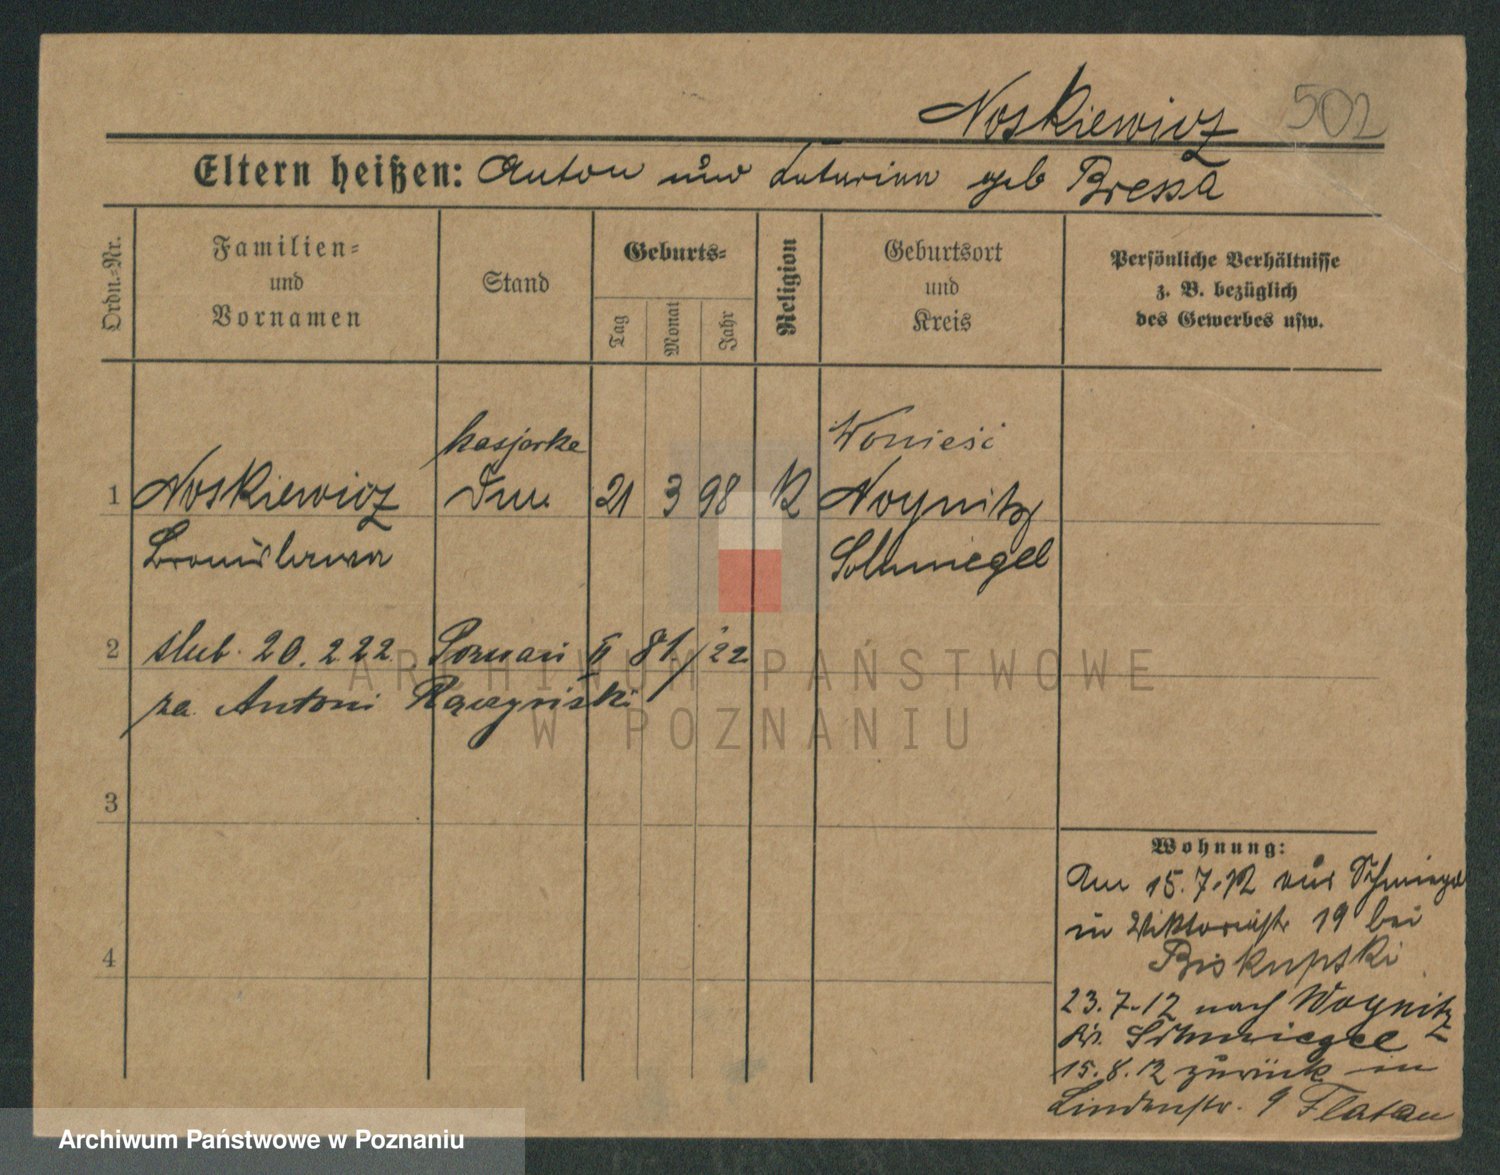 Noskiewicz 502
Eltern heißen: Anton und Katarina geb Bressa
Ordn.=Nr.
Familien=
und
Vornamen
Stand
Geburts=
Tag
Monat
Jahr
Religion
Geburtsort
und
Kreis
Persönliche Verhältnisse
z. B. bezüglich
des Gewerbes usw.
kasjerka Wonieść
1 Noskiewicz 21 3 98 K Woynitz
Bronislawa Schmiegel
2 ślub. 20.2.22 Poznań II 81/22
za Antoni Rączyński
3
4
Wohnung:
Am 15.7.12 aus Schmiegel
in Viktoriastr 19 bei
Biskupski
23.7.12 nach Woynitz
Kr. Schmiegel
15.8.12 zurück in
Lindenstr. 9 Flatau
ARCHIWUM PAŃSTWOWE
W POZNANIU
Archiwum Państwowe w Poznaniu